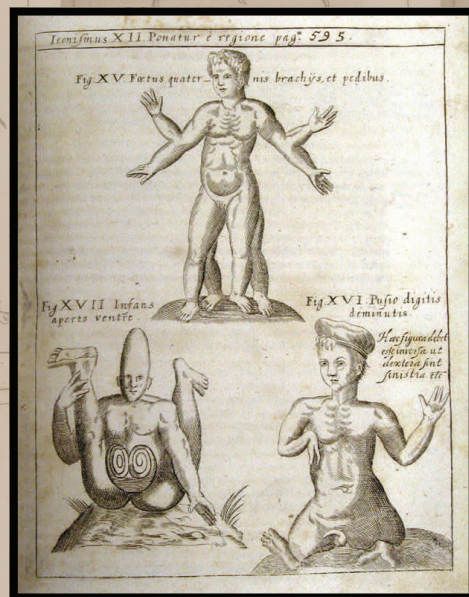 Iconismus XII. Ponatur è regione pag. 595.
Fig. XV. Fœtus quater– nis brachÿs, et pedibus.
Fig XVII Infans
aperto ventre.
Fig. XVI. Pusio digitis
deminutis.
Hæc figura debet
esse inversa ut
dextera sint
sinistra etc